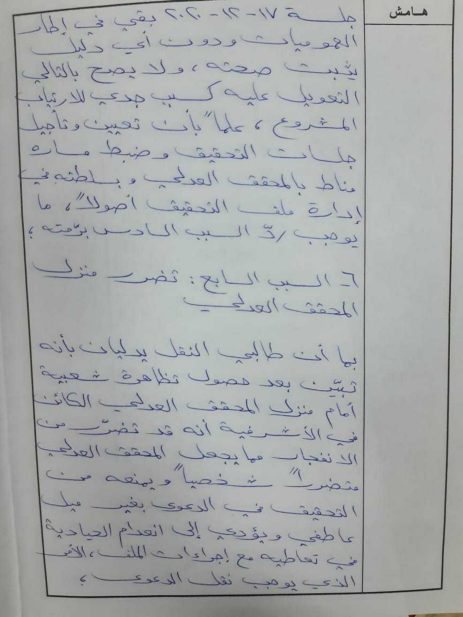 هامش
جلسة ١٧-١٢-٢٠٢٠ بقي في إطار
العموميات ودون أي دليل
يثبت صحته، ولا يصح بالتالي
التعويل عليه كسبب جدي للارتياب
المشروع، علماً بأن تعيين وتأجيل
جلسات التحقيق وضبط مساره
مناط بالمحقق العدلي وبسلطته في
إدارة ملف التحقيق أصولاً، ما
يوجب ردّ السبب السادس برمّته؛
٦- السبب السابع: تضرر منزل
المحقق العدلي
بما أن طالبي النقل يدليان بأنه
تبيّن بعد حصول تظاهرة شعبية
أمام منزل المحقق العدلي الكائن
في الأشرفية أنه قد تضرّر من
الانفجار مما يجعل المحقق العدلي
متضرراً شخصياً ويمنعه من
التحقيق في الدعوى بغير ميل
عاطفي ويؤدي إلى انعدام الحيادية
في تعاطيه مع إجراءات الملف، الأمر
الذي يوجب نقل الدعوى؛